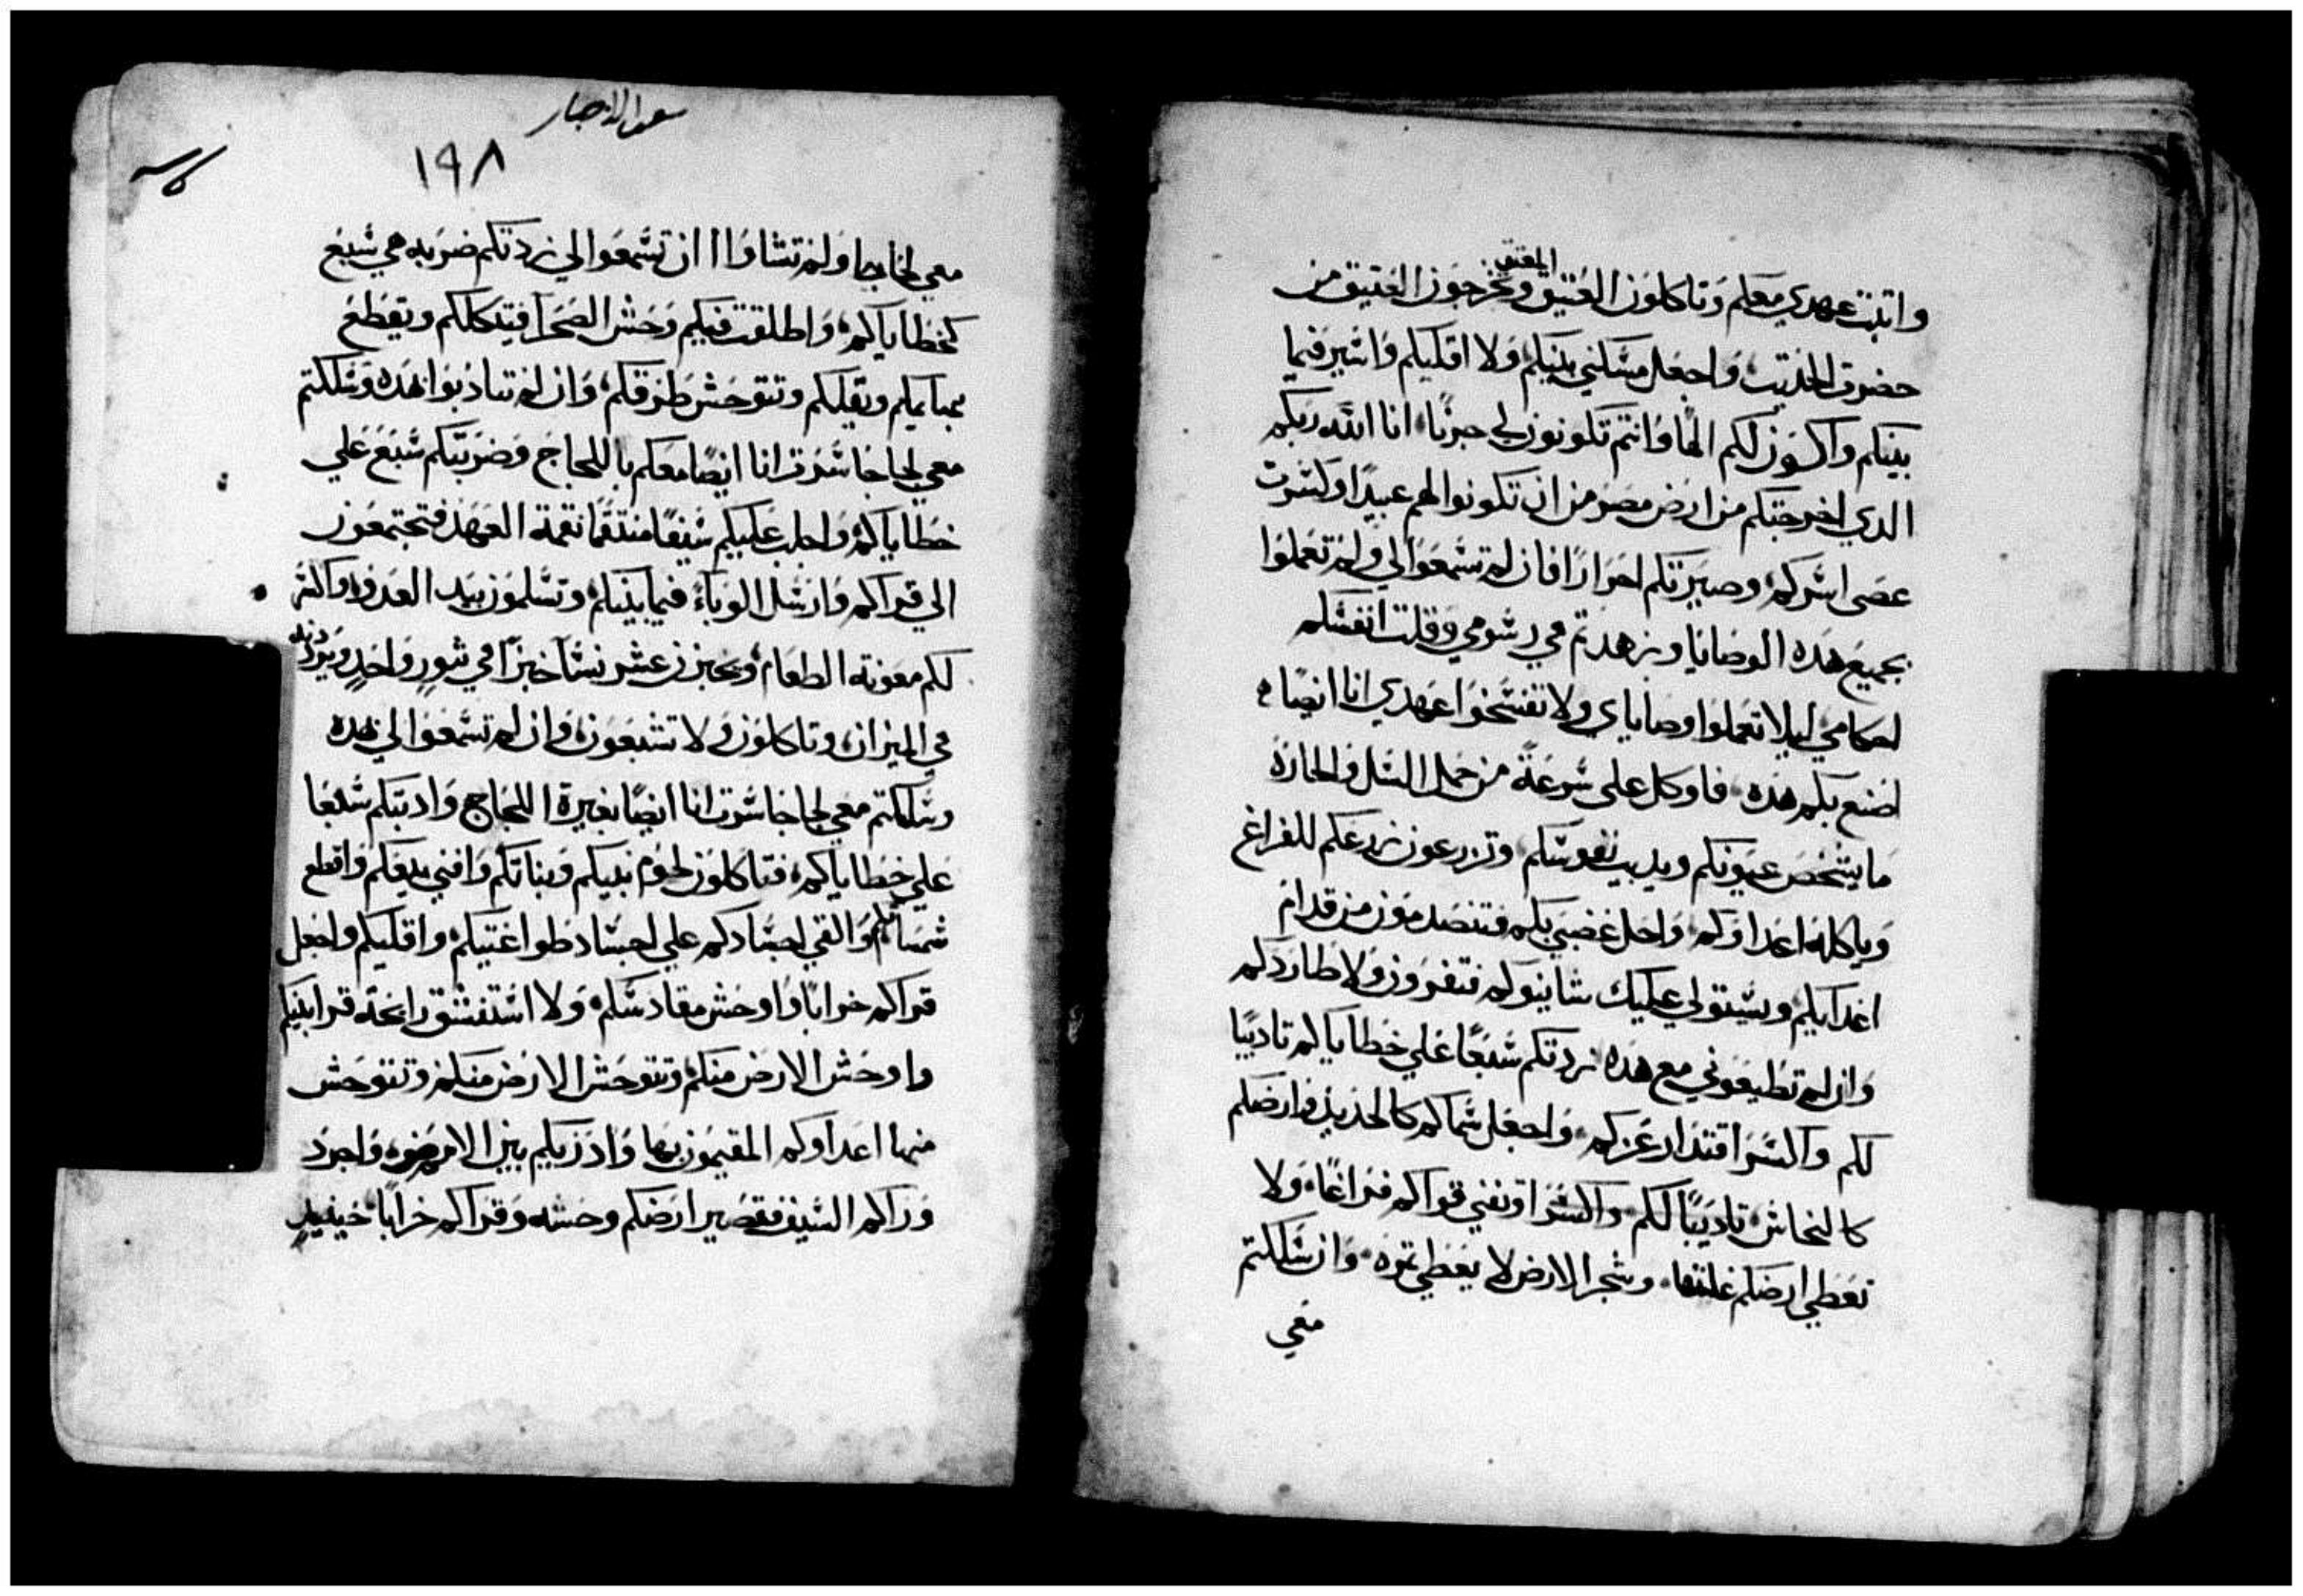 المعتق
واثبت عهدي معكم وتاكلون العتيق وتخرجون العتيق من
حضرت الحديث، واجعل مسكني بينكم ولا اقليكم واسير فيما
بينكم واكون لكم الهًا وانتم تكونون لي حزبًا، انا الله ربكم
الدي اخرجتكم من ارض مصر من ان تكونوا لهم عبيدًا وكسرت
عصى اسركم، وصيرتكم احرارًا فان لم تسمعوا لي ولم تعملوا
بجميع هده الوصايا وزهدتم في رسومي وقلت انفسكم
احكامي ليلا تعملوا وصاياي ولا تفسخوا عهدي انا ايضًا
اصنع بكم هده، فاوكل على سرعة من حمل السل والحارة
ما يشخص عيونكم ويديب نفوسكم وتزرعون زرعكم للفراغ
وياكله اعداوكم واحل غضبي بكم فتنصدمون من قدام
اعدايكم ويستولي عليك شانيوكم فتفرون ولا طاردكم
وان لم تطيعوني مع هده زدتكم سبعًا على خطاياكم تاديبًا
لكم واكسر اقتدار عزكم، واجعل سماكم كالحديد وارضكم
كالنحاس تاديبًا لكم واكسر اوتفني قواكم فراغًا، ولا
تعطي ارضكم غلتها، وشجر الارض لا يعطي ثمره، وان سلكتم
معي
سفر الاحبار
١٩٨
معي لجاجا ولم تشاوا ان تسمعوا لي زدتكم ضربه هي سبع
كخطاياكم، واطلقت فيكم وحش الصحرا فيتكلكم ويقطع
بهايمكم ويقللكم وتتوحش طرقكم، وان لم تتادبوا بهده وسلكتم
معي لجاجا سرت انا ايضًا معكم باللجاج وضربتكم سبع علي
خطاياكم واجلب عليكم سيفًا منتقمًا نقمة العهد فتجتمعون
الي قراكم وارسل الوباء فيما بينكم، وتسلمون بيد العدو، واكسر
لكم معونة الطعام، وتخبزن عشر نسا خبزًا في تنورٍ واحدٍ ويردنه
في الميزان، وتاكلون ولا تشبعون، وان لم تسمعوا لي بهده
وسلكتم معي لجاجا سرت انا ايضًا بغيرة اللجاج وادبتكم سبعا
علي خطاياكم، فتاكلون لحوم بنيكم وبناتكم وافني بيعكم واقطع
شمساتكم والقي اجسادكم علي اجساد طواغتيكم، واقليكم واجعل
قراكم خرابًا واوحش مقادسكم، ولا استنشق رايحة قرابينكم
واوحش الارض منكم وتتوحش الارض منكم وتتوحش
منها اعداوكم المقيمون بها واذريكم بين الامم واجرد
وراكم السيف فتصير ارضكم وحشه وقراكم خرابًا، حينيدٍ